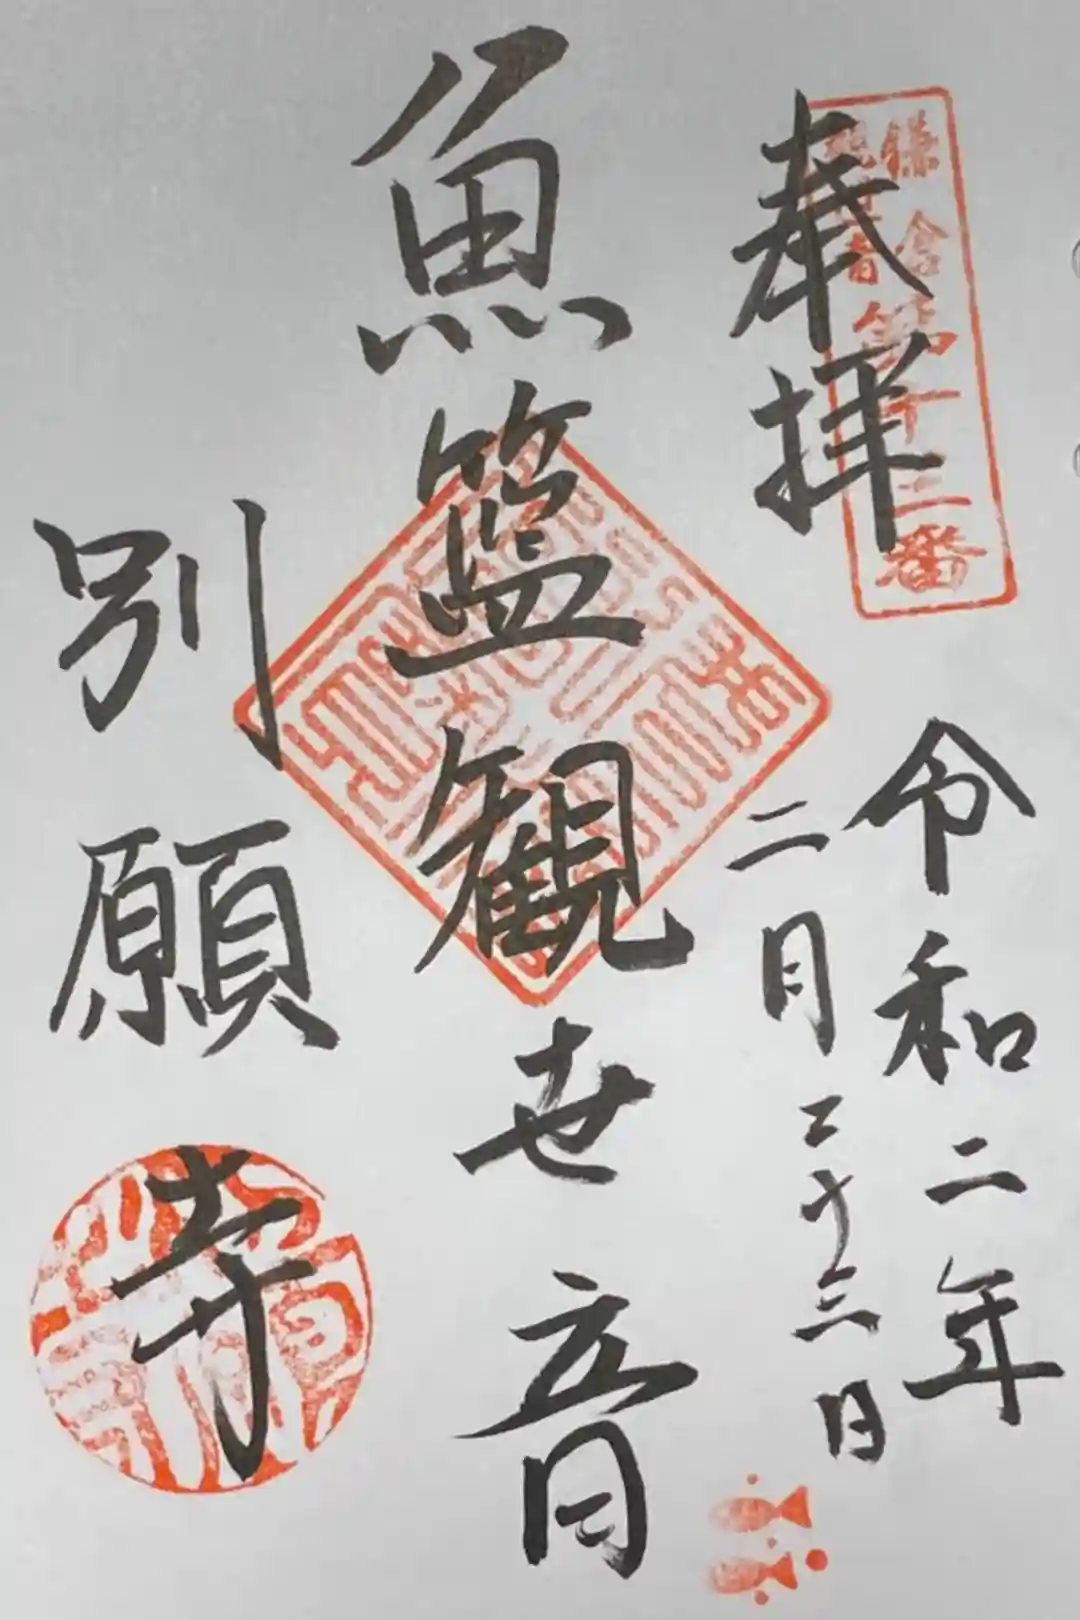 奉拝
鎌倉
観世音
第十三番
令和二年
二月二十三日
魚籃観世音
別願寺